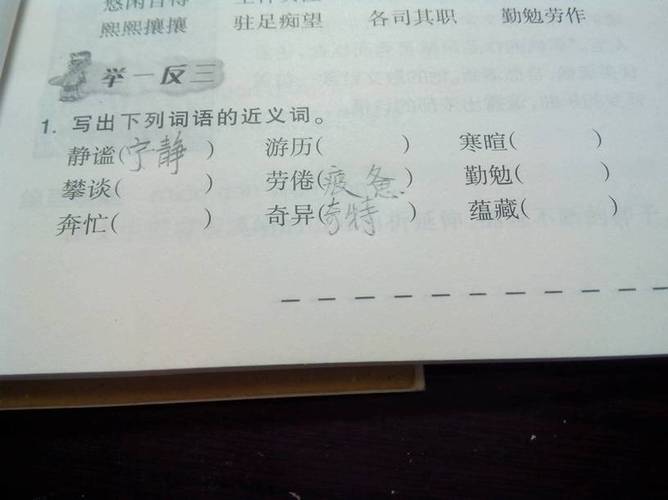 悠闲自得
熙熙攘攘 驻足痴望 各司其职 勤勉劳作
举一反三
1. 写出下列词语的近义词。
静谧(宁静) 游历( ) 寒暄( )
攀谈( ) 劳倦(疲惫) 勤勉( )
奔忙( ) 奇异(奇特) 蕴藏( )